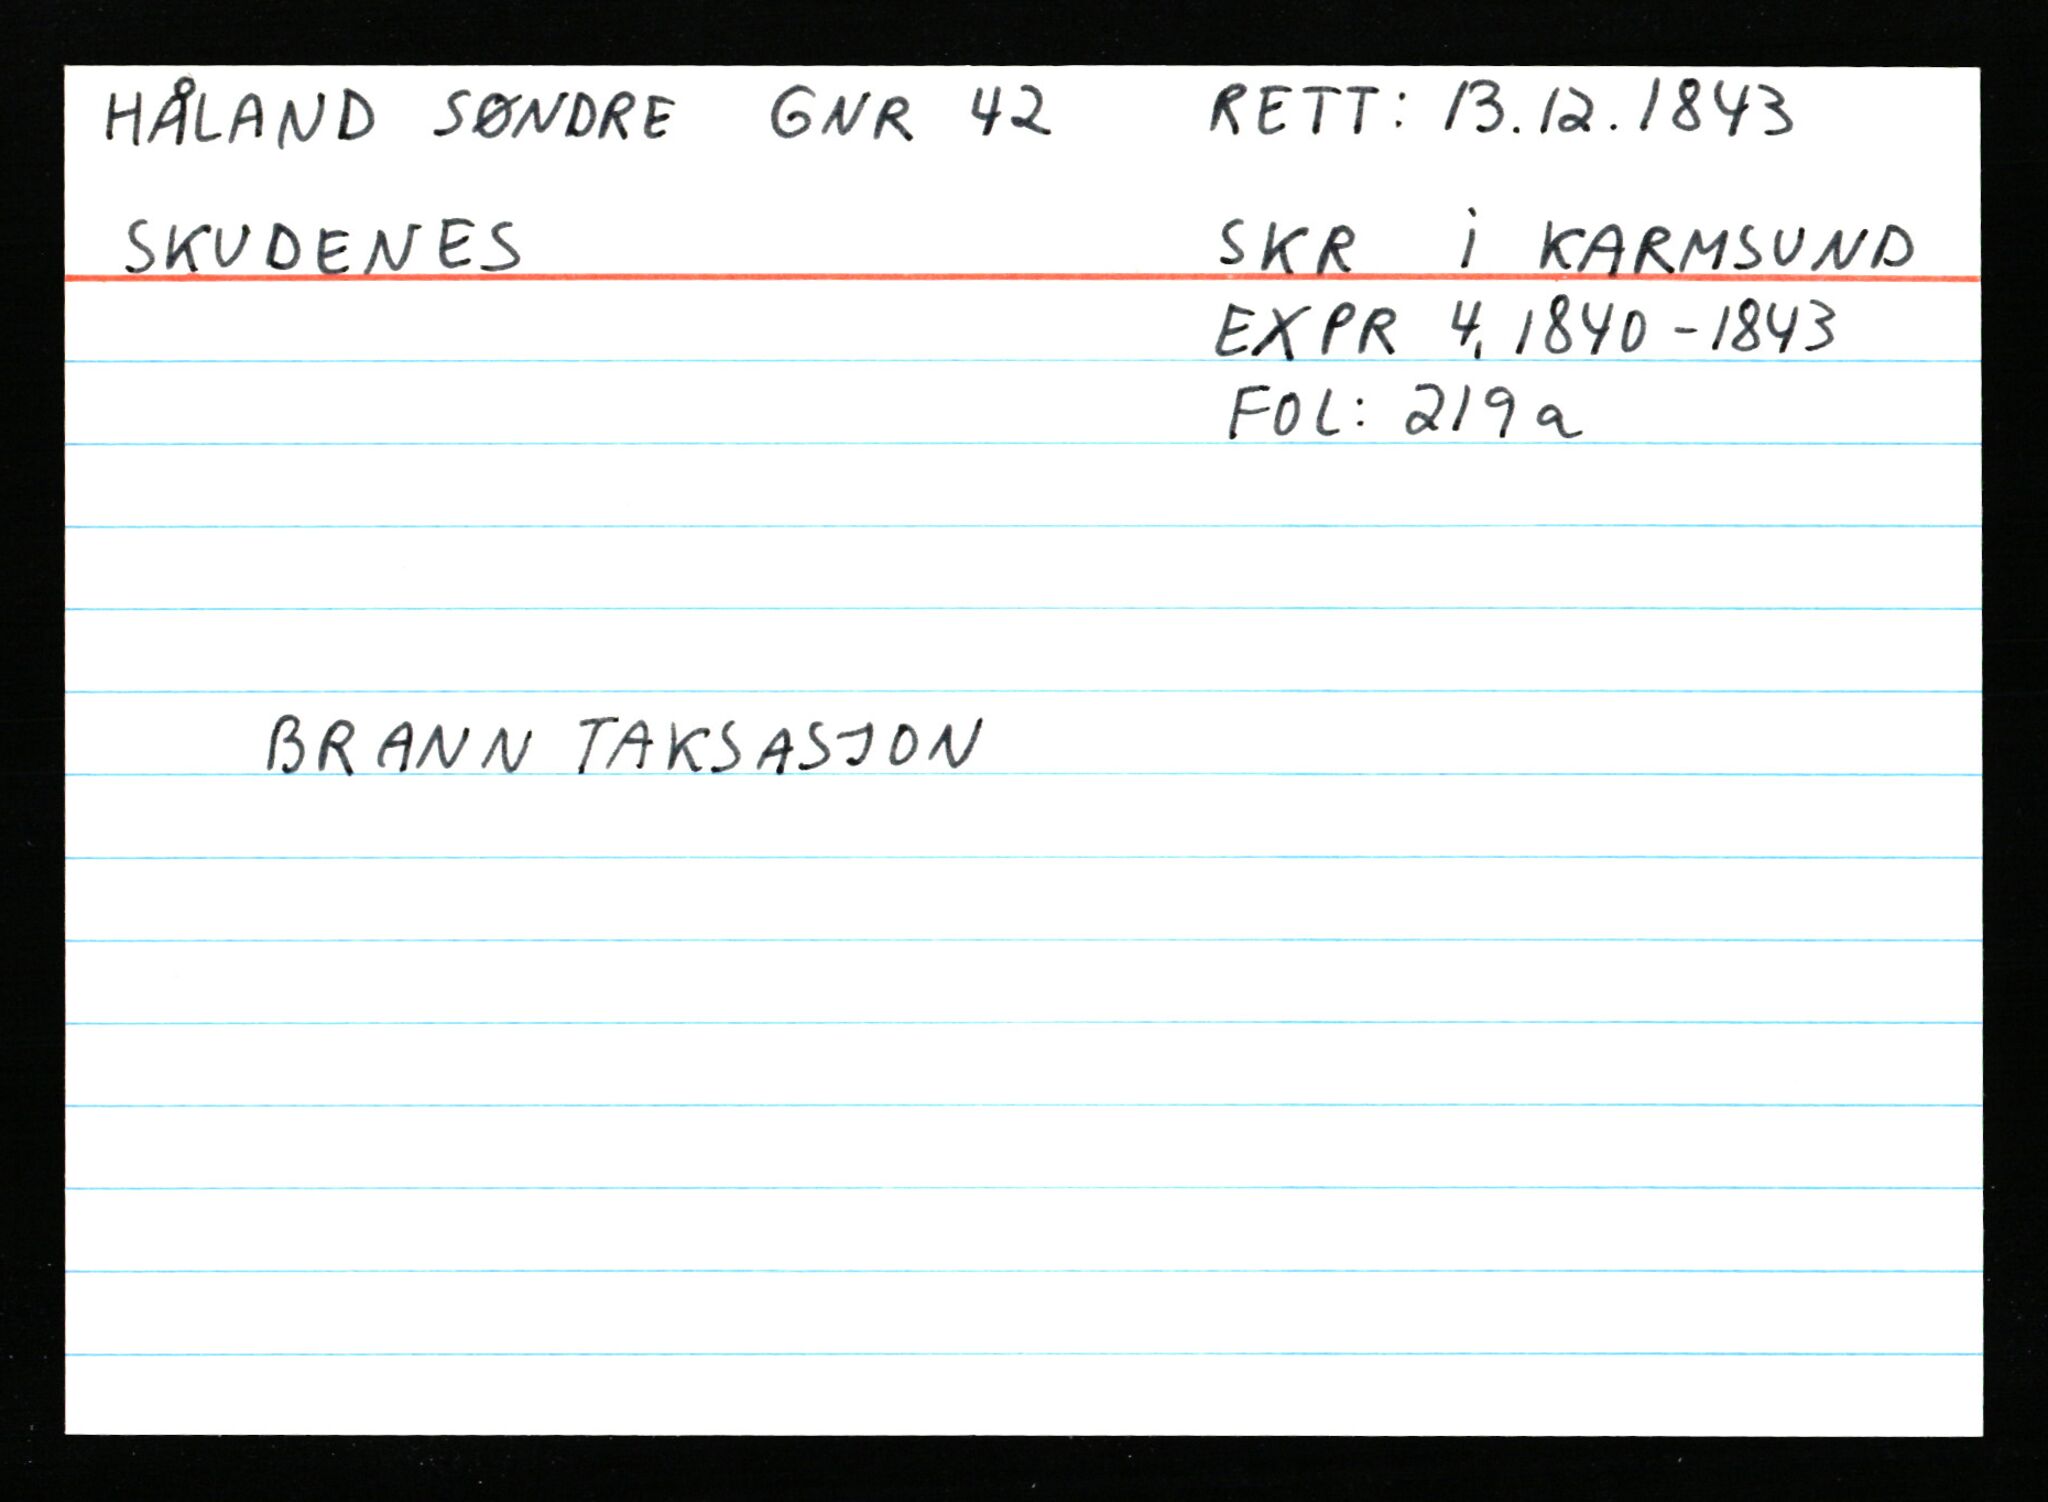 HÅLAND SØNDRE GNR 42 RETT: 13.12.1843
SKUDENES SKR i KARMSUND
EXPR 4, 1840-1843
FOL: 219a
BRANN TAKSASJON